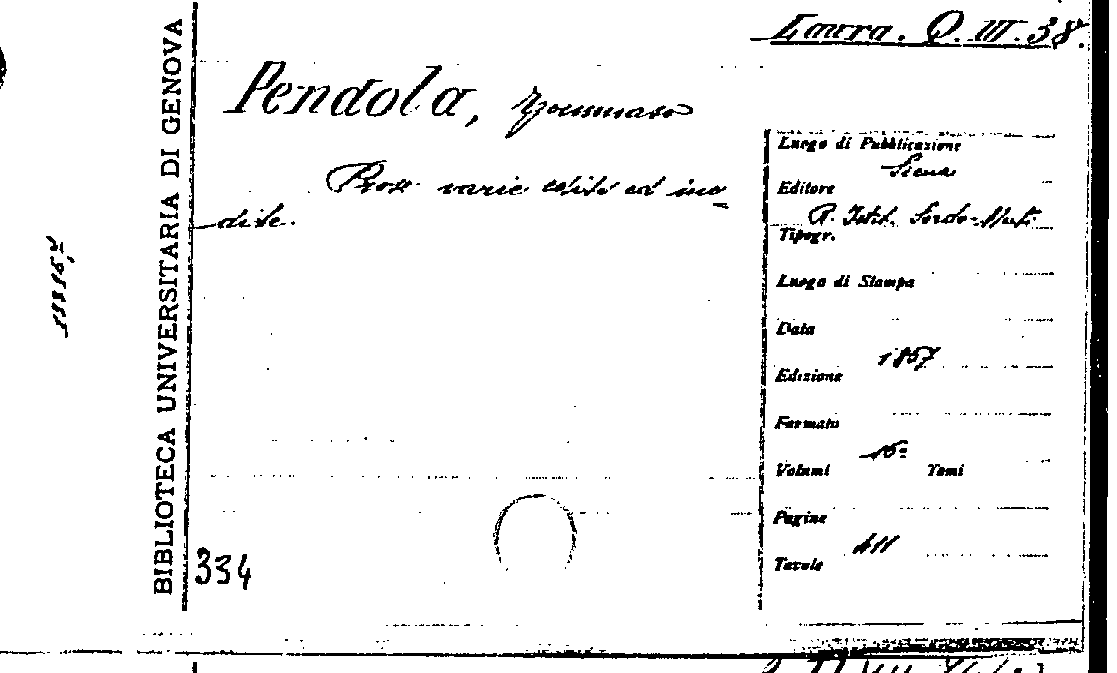 Laura. Q. III. 38.
Pendola, Tommaso
Prose varie edite ed ine-
dite.
BIBLIOTECA UNIVERSITARIA DI GENOVA
334
Luogo di Pubblicazione
Siena
Editore
R. Istit. Sordo-Muti
Tipogr.
Luogo di Stampa
Data
1857
Edizione
Formato
16º
Volumi Tomi
Pagine
411
Tavole